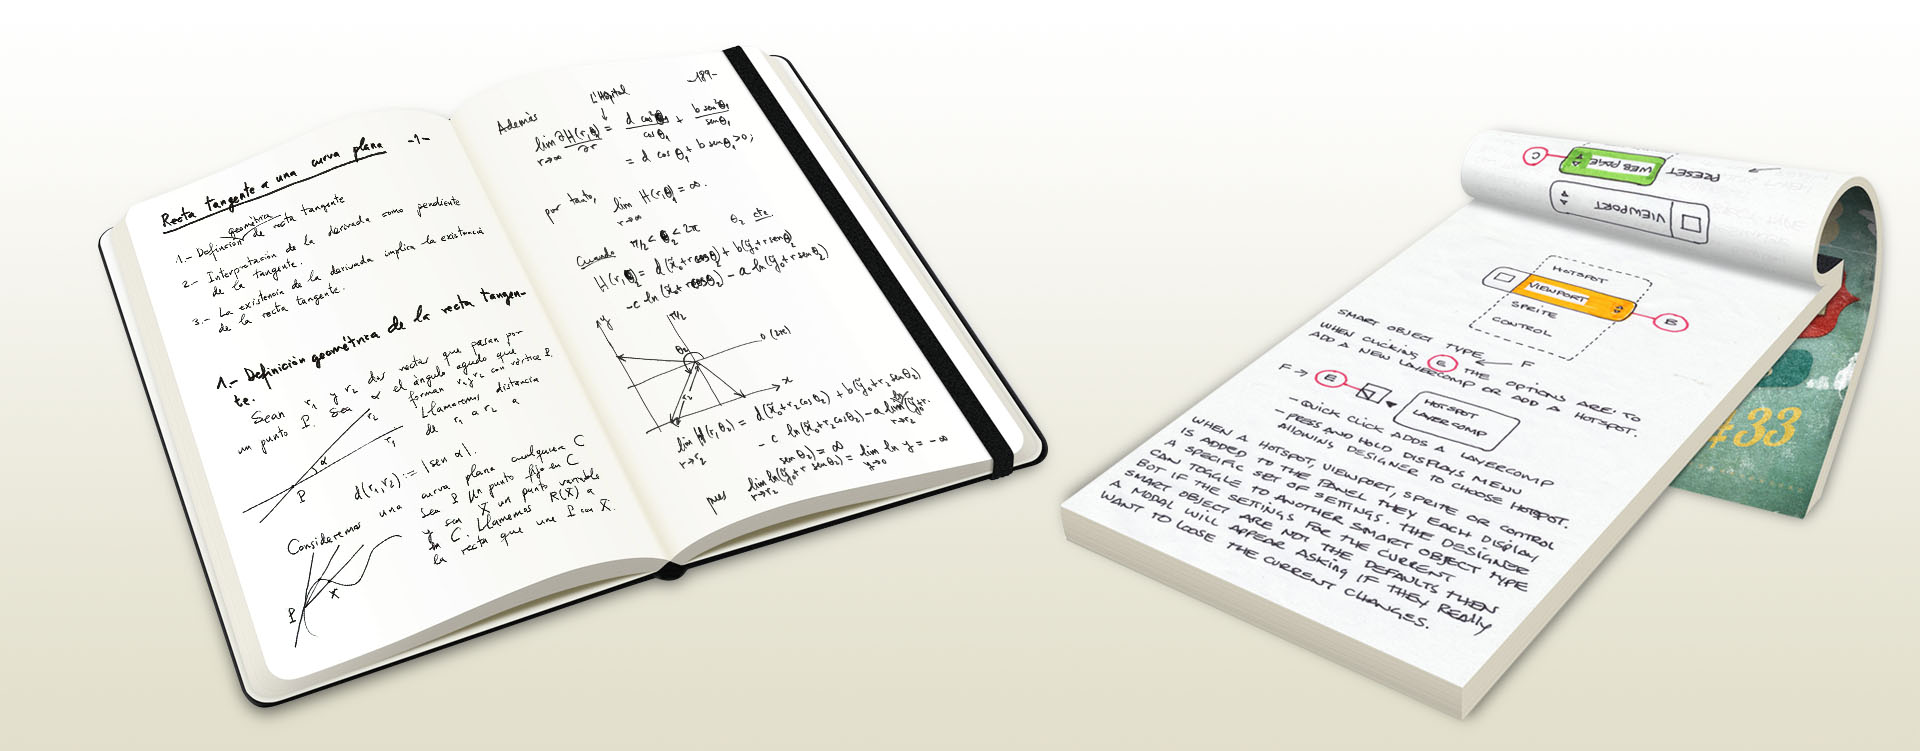 Recta tangente a una curva plana -1-
geométrica
1.- Definición de recta tangente
2.- Interpretación de la derivada como pendiente
de la tangente.
3.- La existencia de la derivada implica la existencia
de la recta tangente.
1.- Definición geométrica de la recta tangen-
te.
Sean r₁ y r₂ dos rectas que pasan por
un punto P. Sea α el ángulo agudo que
forman r₁ y r₂ con vértice P.
Llamaremos distancia
de r₁ a r₂ a
r₂
r₁
α
P
d(r₁,r₂) := |sen α|.
Consideremos una curva plana cualquiera C
Sea P un punto fijo en C
y sea X un punto variable
en C. Llamemos R(X) a
la recta que une P con X.
P
X
-189-
L'Hôpital
Además
lim ∂H(r,θ₁)/∂r = d cos²θ₁/cos θ₁ + b sen²θ₁/sen θ₁
r→∞
= d cos θ₁ + b sen θ₁ > 0;
por tanto,
lim H(r,θ₁) = ∞.
r→∞
Cuando π/2 < θ₂ < 2π θ₂ cte.
H(r,θ₂) = d(x̃₀+r cos θ₂) + b(ỹ₀+r sen θ₂)
-c ln(x̃₀+r cos θ₂) - a ln(ỹ₀+r sen θ₂)
y
π/2
θ₂
0 (2π)
r₂
x
lim H(r,θ₂) = d(x̃₀+r₂ cos θ₂) + b(ỹ₀+r₂ sen θ₂)
r→r₂
- c ln(x̃₀+r₂ cos θ₂) - a lim ln(ỹ₀+r.
r→r₂
sen θ₂) = ∞
pues lim ln(ỹ₀+r sen θ₂) = lim ln y = -∞
r→r₂ y→0
C
WEB PAGE
PRESET
VIEWPORT
HOTSPOT
VIEWPORT
SPRITE
CONTROL
B
SMART OBJECT TYPE
WHEN CLICKING E THE OPTIONS ARE: TO
ADD A NEW LAYERCOMP OR ADD A HOTSPOT.
F
F → E
HOTSPOT
LAYERCOMP
- QUICK CLICK ADDS A LAYERCOMP
- PRESS AND HOLD DISPLAYS MENU
ALLOWING DESIGNER TO CHOOSE HOTSPOT.
WHEN A HOTSPOT, VIEWPORT, SPRITE OR CONTROL
IS ADDED TO THE PANEL THEY EACH DISPLAY
A SPECIFIC SET OF SETTINGS. THE DESIGNER
CAN TOGGLE TO ANOTHER SMART OBJECT TYPE
BUT IF THE SETTINGS FOR THE CURRENT
SMART OBJECT ARE NOT THE DEFAULTS THEN
A MODAL WILL APPEAR ASKING IF THEY REALLY
WANT TO LOOSE THE CURRENT CHANGES.
#33